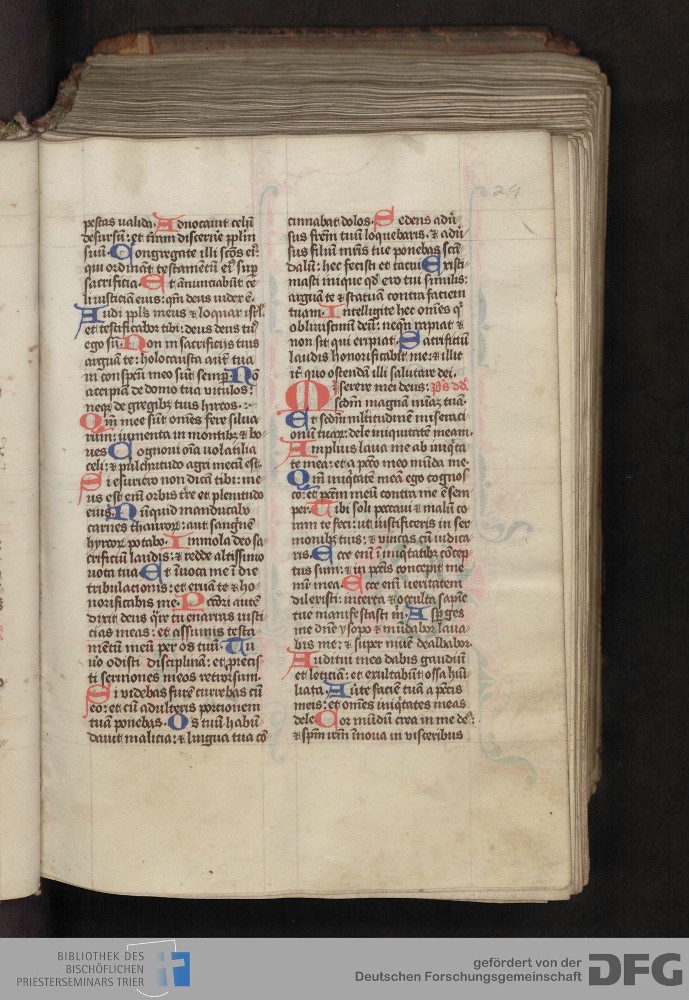 29
pestas ualida. Aduocauit celū
desursū: et t̄ram discern̄e pp̄lm
suū. Congregate illi sc̄os ei⁹:
qui ordināt testamētū ei⁹ sup̄
sacrificia. Et ānunciabūt ce
li iusticiam eius: qm̄ deus iudex ē.
Audi pp̄ls meus ⁊ loquar isr̄l
et testificabor tibi: deus deus tu⁹
ego sū. Non in sacrificijs tuis
arguā te: holocausta aut̄ tua
in conspc̄u meo sūt semp̄. Nō
accipiā de domo tua vitulos:
neqꝫ de gregibꝫ tuis hyrcos.
Qm̄ mee sūt om̄es fere silua
rum: iumenta in montibꝫ ⁊ bo
ues. Cognoui oīa volatilia
celi: ⁊ pulchritudo agri mecū est.
Si esuriero non dicā tibi: me
us est eni orbis t̄re et plenitudo
eius. Nūquid manducabo
carnes thauroꝝ: aut sanguinē
hyrcoꝝ potabo. Immola deo sa
crificiū laudis: ⁊ redde altissimo
uota tua. Et īuoca me ī die
tribulacionis: et eruā te ⁊ ho
norificabis me. Pctōri autē
dixit deus q̄re tu enarras iusti
cias meas: et assumis testa
mētū meū per os tuū. Tu
u̇o odisti disciplinā: et p̄iecis
ti sermones meos retrorsum.
Si videbas furē currebas cū
eo: et cū adulteris portionem
tuā ponebas. Os tuū habū
dauit malicia: ⁊ lingua tua cō
cinnabat dolos. Sedens adū
sus frēm tuū loquebaris. ⁊ adū
sus filiū mr̄is tue ponebas scā
dalū: hec fecisti et tacui. Existi
masti inique qd̄ ero tui similis:
arguā te ⁊ statuā contra faciem
tuam. Intelligite hec om̄es q̇
obliuiscimī deū: neqn̄ rapiat ⁊
non sit qui eripiat. Sacrificiū
laudis honorificabit me: ⁊ illic
it̄ quo ostendā illi salutare dei.
Miserere mei deus: p̄s dd̄.
scdm̄ magnā mīaꝫ tuā.
Et scdm̄ mltitudinē miseraci
onū tuaꝝ: dele iniquitatē meam.
Amplius laua me ab iniq̇ta
te mea: et a pctō meo mūda me.
Qm̄ iniq̇tatē meā ego cognos
co: et pctm̄ meū contra me ē sem
per. Tibi soli peccaui ⁊ malū co
ram te feci: ut iustificeris in ser
monibꝫ tuis: ⁊ vincas cū iudica
ris. Ecce eni ī iniq̇tatibꝫ cōcep
tus sum: ⁊ in pctīs concepit me
mr̄ mea. Ecce eni ueritatem
dilexisti: incerta ⁊ occulta sapīe
tue manifestasti m̄. Asp̄ges
me dn̄e ysopo ⁊ mūdabor laua
bis me: ⁊ super niuē dealbabor.
Auditui meo dabis gaudiū
et leticiā: et exultabūt ossa hūi
liata. Auerte faciē tuā a pctīs
meis: et om̄es iniq̇tates meas
dele. Cor mūdū crea in me de⁹:
⁊ sp̄m rc̄m īnoua in visceribus
BIBLIOTHEK DES
BISCHÖFLICHEN
PRIESTERSEMINARS TRIER
gefördert von der
Deutschen Forschungsgemeinschaft
DFG